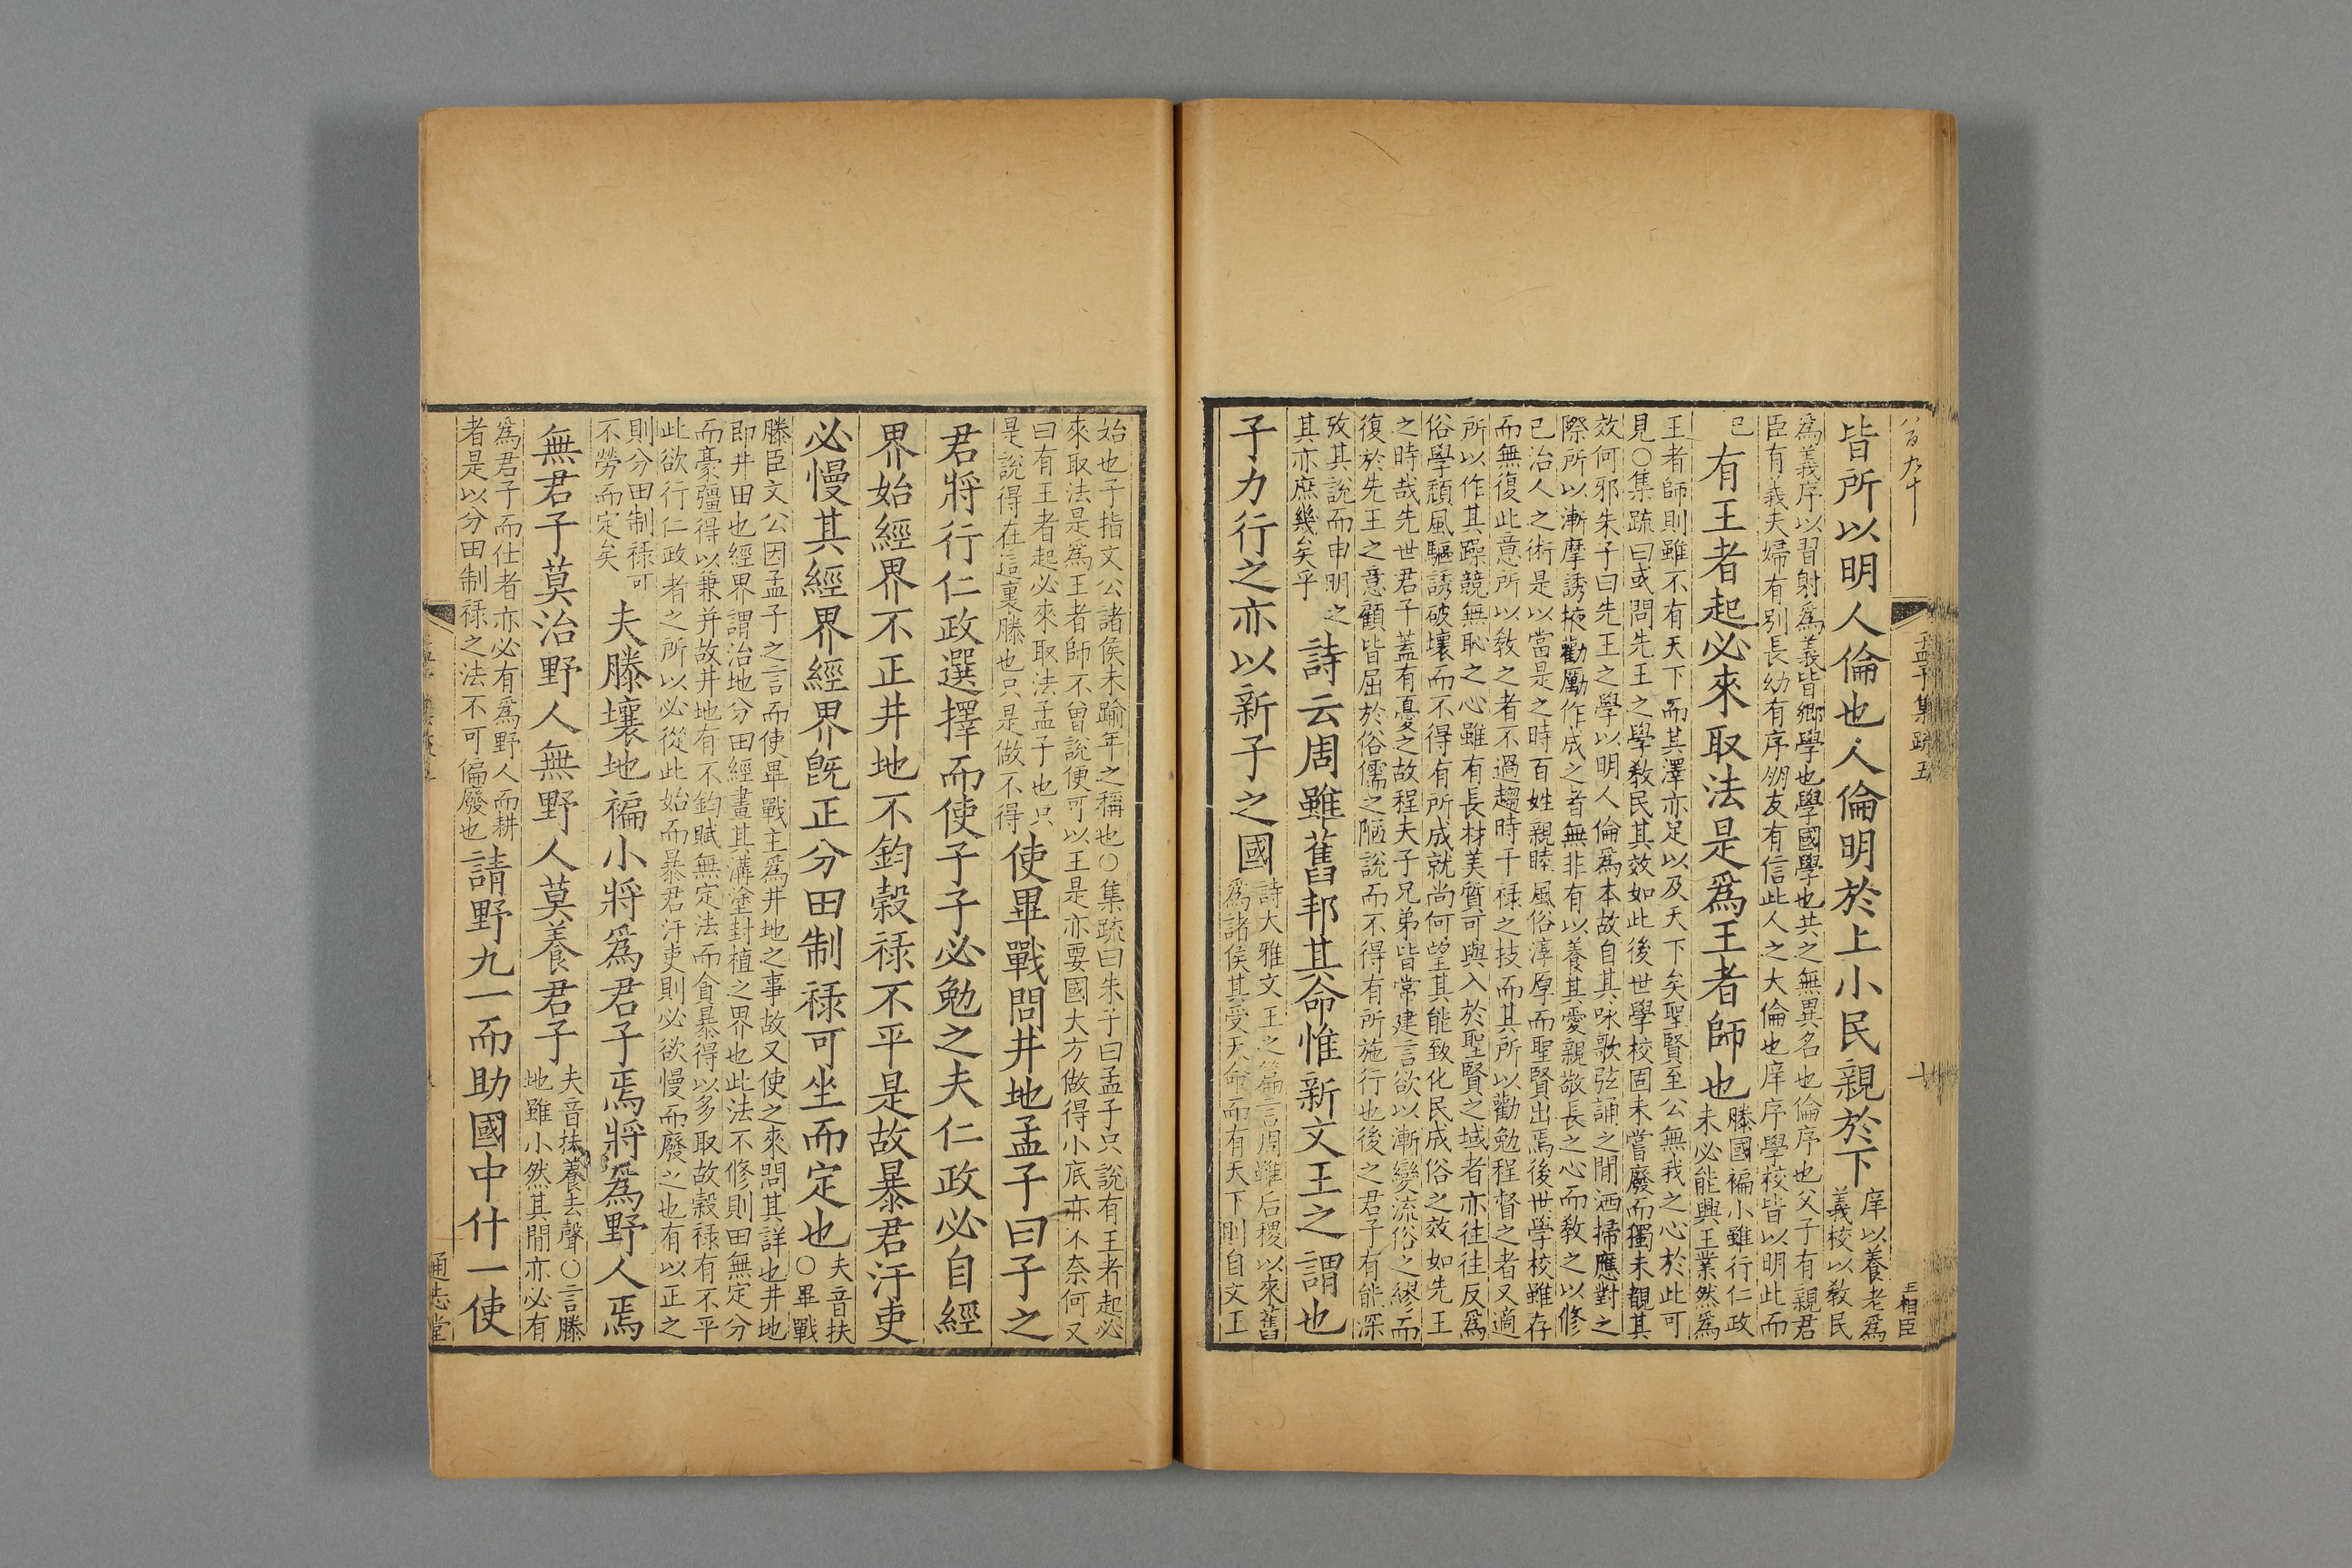 八百九十
孟子集疏五
十
王相臣
皆所以明人倫也人倫明於上小民親於下
庠以養老爲
義校以敎民
爲義序以習射爲義皆鄉學也學國學也共之無異名也倫序也父子有親君
臣有義夫婦有別長幼有序朋友有信此人之大倫也庠序學校皆以明此而
已
有王者起必來取法是爲王者師也
滕國褊小雖行仁政
未必能興王業然爲
王者師則雖不有天下而其澤亦足以及天下矣聖賢至公無我之心於此可
見○集疏曰或問先王之學敎民其效如此後世學校固未嘗廢而獨未覩其
效何邪朱子曰先王之學以明人倫爲本故自其咏歌弦誦之閒洒掃應對之
際所以漸摩誘掖勸勵作成之者無非有以養其愛親敬長之心而敎之以修
己治人之術是以當是之時百姓親睦風俗淳厚而聖賢出焉後世學校雖存
而無復此意所以敎之者不過趨時干祿之技而其所以勸勉程督之者又適
所以作其躁競無恥之心雖有長材美質可與入於聖賢之域者亦往往反爲
俗學頹風驅誘破壞而不得有所成就尚何望其能致化民成俗之效如先王
之時哉先世君子蓋有憂之故程夫子兄弟皆常建言欲以漸變流俗之繆而
復於先王之意顧皆屈於俗儒之陋說而不得有所施行也後之君子有能深
攷其說而申明之
其亦庶幾矣乎
詩云周雖舊邦其命惟新文王之謂也
子力行之亦以新子之國
詩大雅文王之篇言周雖后稷以來舊
爲諸侯其受天命而有天下則自文王
始也子指文公諸侯未踰年之稱也○集疏曰朱子曰孟子只說有王者起必
來取法是爲王者師不曾說便可以王是亦要國大方做得小底亦不奈何又
曰有王者起必來取法孟子也只
是說得在這裏滕也只是做不得
使畢戰問井地孟子曰子之
君將行仁政選擇而使子子必勉之夫仁政必自經
界始經界不正井地不鈞穀祿不平是故暴君汙吏
必慢其經界經界旣正分田制祿可坐而定也
夫音扶
○畢戰
滕臣文公因孟子之言而使畢戰主爲井地之事故又使之來問其詳也井地
即井田也經界謂治地分田經畫其溝塗封植之界也此法不修則田無定分
而豪彊得以兼并故井地有不鈞賦無定法而貪暴得以多取故穀祿有不平
此欲行仁政者之所以必從此始而暴君汙吏則必欲慢而廢之也有以正之
則分田制祿可
不勞而定矣
夫滕壤地褊小將爲君子焉將爲野人焉
無君子莫治野人無野人莫養君子
夫音扶養去聲○言滕
地雖小然其閒亦必有
爲君子而仕者亦必有爲野人而耕
者是以分田制祿之法不可偏廢也
請野九一而助國中什一使
通志堂